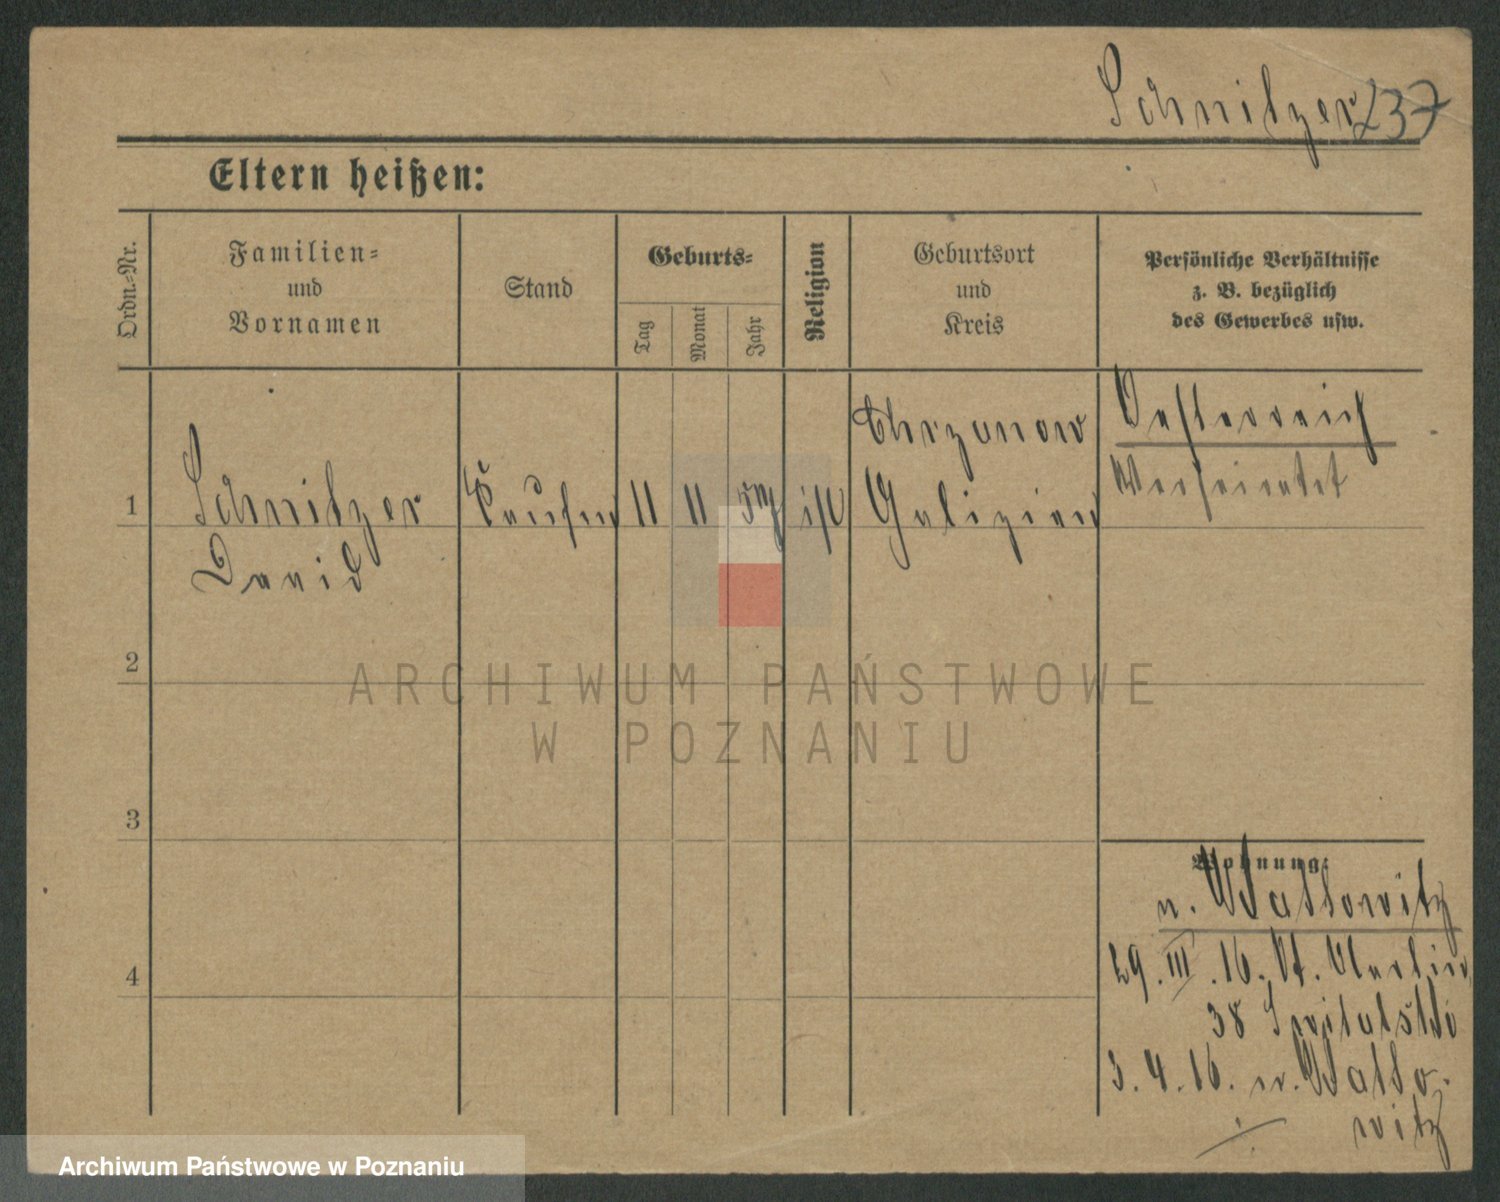 Schnitzer 237
Eltern heißen:
Ordn.-Nr.
Familien-
und
Vornamen
Stand
Geburts-
Tag
Monat
Jahr
Religion
Geburtsort
und
Kreis
Persönliche Verhältnisse
z. B. bezüglich
des Gewerbes usw.
1
Schnitzer
David
Kaufm
11
11
Chrzanow
Galizien
Oesterreich
Verheiratet
2
3
4
Wohnung:
n. Wattowitz
29. III. 16. Berlin
38
3. 4. 16. n. Watto-
witz
ARCHIWUM PAŃSTWOWE
W POZNANIU
Archiwum Państwowe w Poznaniu